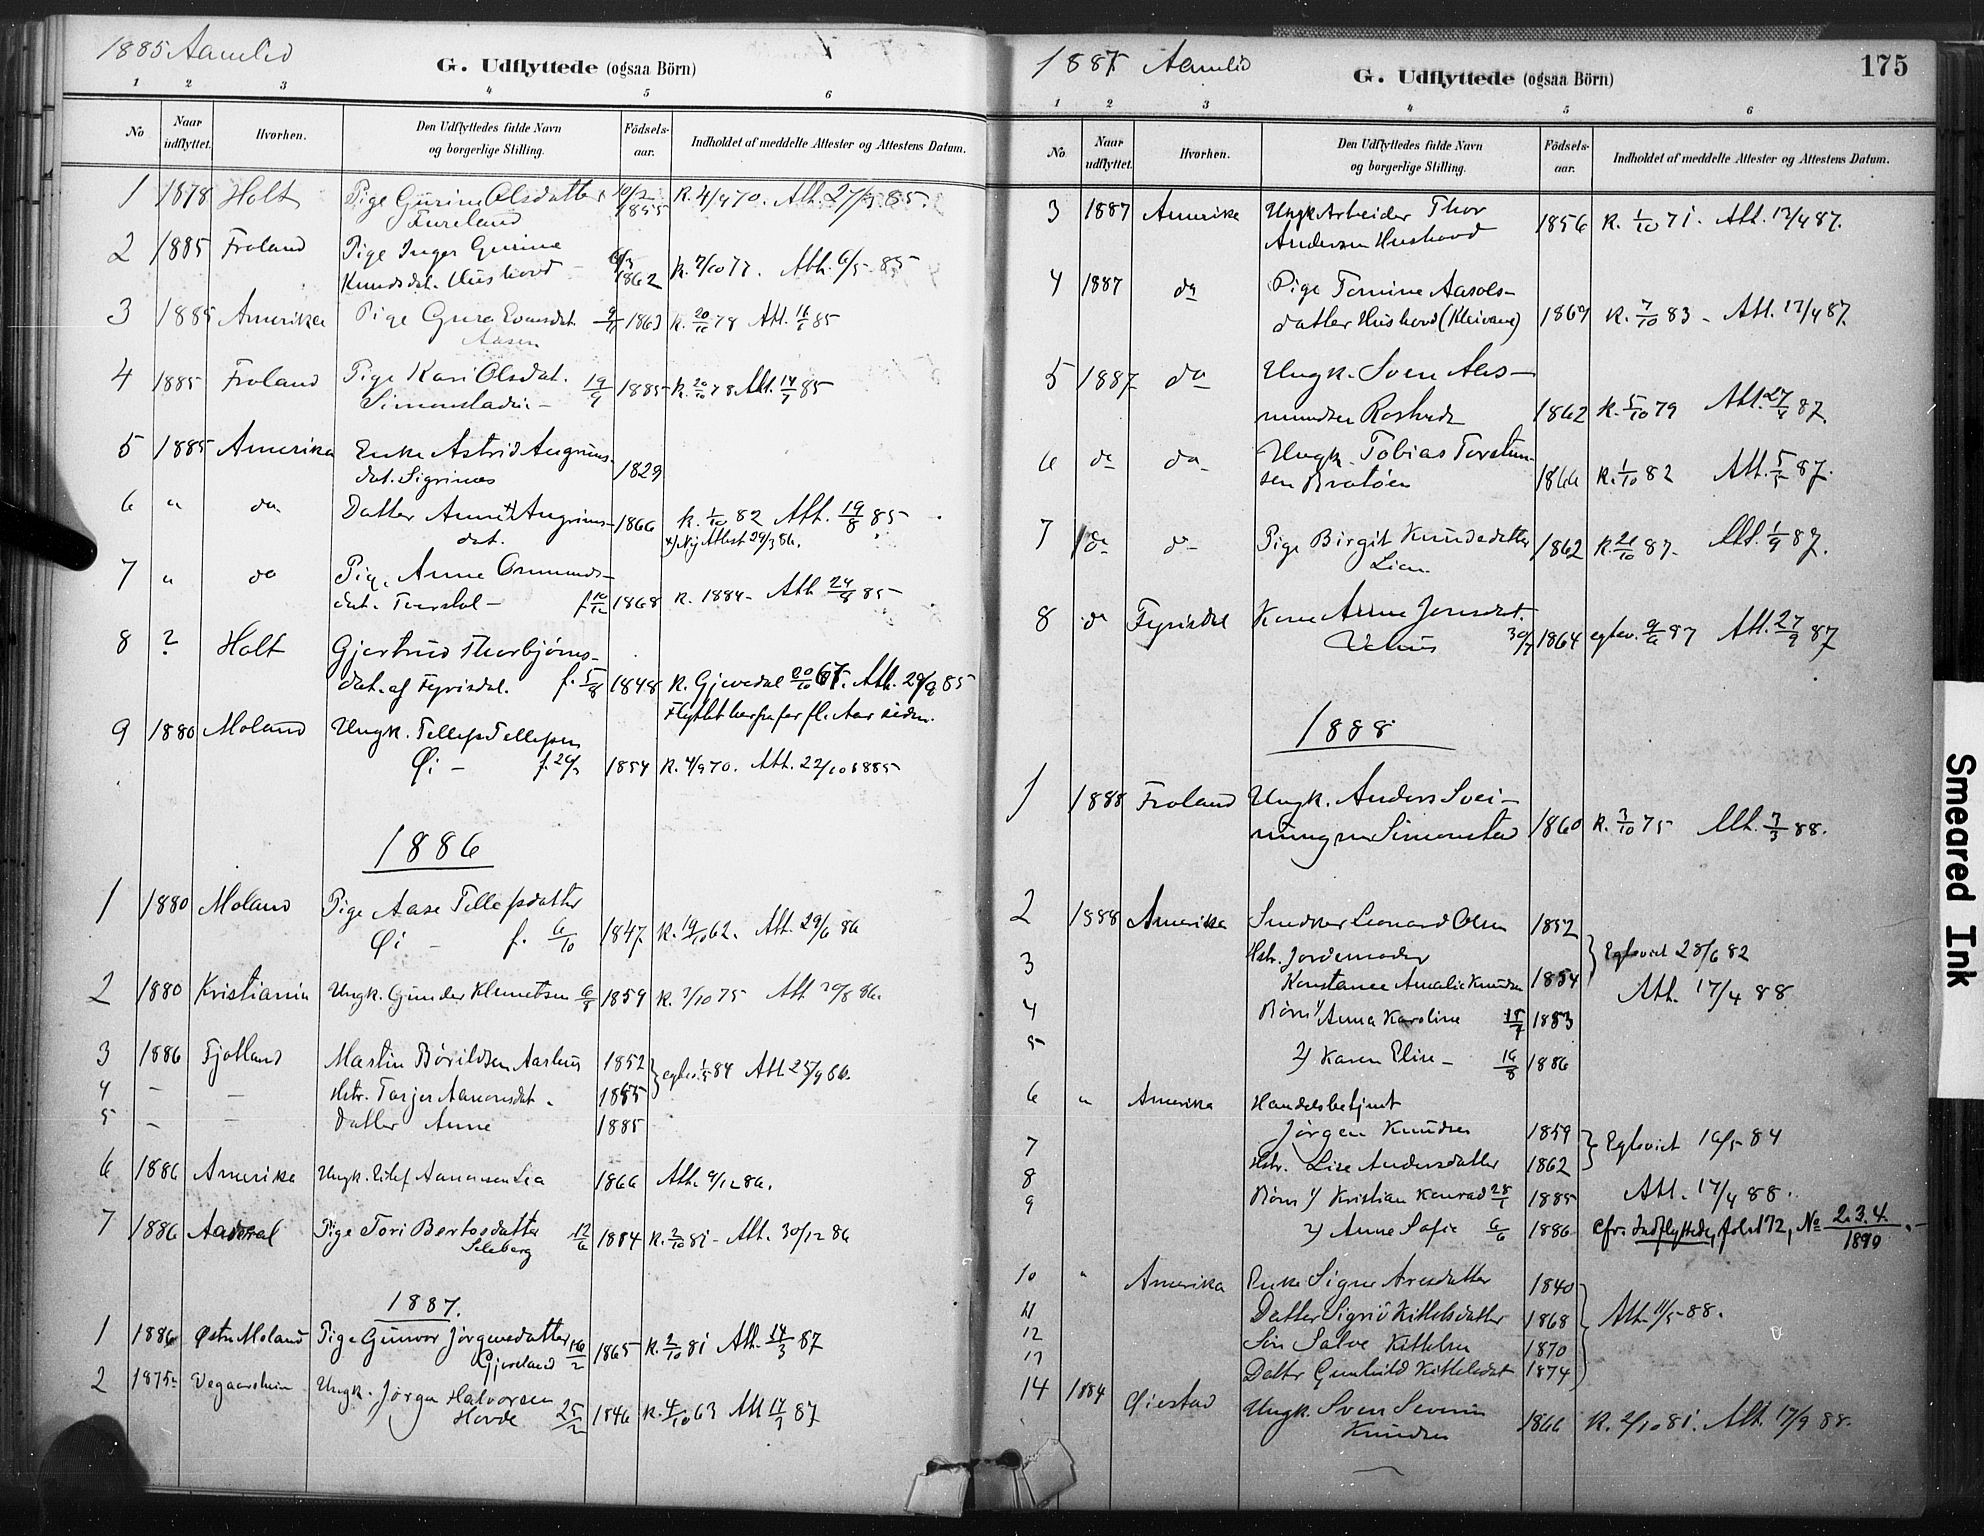 1885 Aamlid
G. Udflyttede (ogsaa Börn)
1 2 3 4 5 6
No Naar udflyttet. Hvorhen. Den Udflyttedes fulde Navn og borgerlige Stilling. Födsels-aar. Indholdet af meddelte Attester og Attestens Datum.
1 1878 Holt Pige Gurine Olsdatter 10/2 1855 K. 4/9 70. Att. 85.
2 1885 Froland Pige Inger Gurine
Knudsdat. Hushovd 1862 K. 7/10 77. Att. 6/5 85
3 1885 Amerika Pige Guro Evensdat. 1863 K. 20/10 78 Att. 85
Aasen
4 1885 Froland Pige Kari Olsdat. 19/9 1885 K. 20/10 78 Att. 85
5 1885 Amerika Enke Astrid Augrims-
dat. Sigrinæs 1829
6 " do Datter Anne x) Augrims- 1866 K. 1/10 82 Att. 19/8 85
dat. x) Ny Attest 29/3 86.
7 " do Pige Anne Osmunds-
dat. Tveidal f. 1868 K. 1884 Att. 24/8 85
8 ? Holt Gjertrud Thorbjörns-
dat. af Fyrisdal. f. 5/8 1848 K. Gjevedal 20/10 67. Att. 29/9 85
Flyttet herfra for fl. Aar siden.
9 1880 Moland Ungk. Tellef Tellefsen
Øi f. 1854 K. 4/9 70. Att. 22/10 1885
1886
1 1880 Moland Pige Aase Tellefsdatter
Øi f. 6/10 1847. K. 19/10 62. Att. 29/6 86
2 1880 Kristiania Ungk. Gunder Klemetsen 6/8 1859 K. 3/10 75 Att. 86.
3 1886 Fjotland Martin Börildsen Aashus 1852 84 Att. 25/9 86.
4 — — Hstr. Tarjer Aanonsdat. 1855
5 — Datter Anne 1885
6 1886 Amerika Ungk. Aanonsen Lia 1866 Att. 9/12 86.
7 1886 Pige Tori 12/6 K. 2/10 81 Att. 30/12 86
1887.
1 1886 Østre Moland Pige Gunvor Jörgensdatter 16/2 1865 K. 2/10 81 Att. 14/3 87
Gjereland
2 1875 Vegaarsheien Ungk. Jörgen Halvorsen
Hovde 25/2 1846 K. 4/10 63 Att. 87
1887 Aamlid
G. Udflyttede (ogsaa Börn) 175
1 2 3 4 5 6
No Naar udflyttet. Hvorhen. Den Udflyttedes fulde Navn og borgerlige Stilling. Födsels-aar. Indholdet af meddelte Attester og Attestens Datum.
3 1887 Amerika Ungk. Arbeider Thor
Andersen Hushovd 1856 K. 1/10 71. Att. 12/4 87.
4 1887 do Pige Tomine Aasols-
datter Hushovd (Kleivane) K. 7/10 83 Att. 87.
5 1887 do Ungk. Sven Aas-
mundsen 1862 K. 5/10 79 Att. 87.
6 do do Ungk. Tobias Torstun-
sen Bratöen 1866 K. 1/10 82 Att. 5/5 87.
7 do do Pige Birgit Knudsdatter 1862 K. Att. 1/9 87.
Lien
8 do Fyrisdal Kone Anne Jensdat.
1864 egtev. 9/6 87 Att. 27/9 87
1888
1 1888 Froland Ungk. Anders Svei-
nungsen Simonstad 1860 K. 3/10 75 Att. 7/3 88.
2 1888 Amerika Snedker Leonard Olsen 1852
3 Hstr. Jordemoder Egteviet 28/6 82
Konstance Amalie Knudsen 1854 Att. 17/4 88
4 Börn 1) Anna Karoline 15/7 1883
5 2) Karen Elise 16/8 1886
6 " Amerika Handelsbetjent
Jörgen Knudsen 1859 Egteviet 16/5 84
7 Hstr. Lise Andersdatter 1862
8 Börn 1) Kristian Konrad 28/1 1885 Att. 17/4 88.
9 2) Anne Sofie 6/6 1886 Cfr. Indflyttede, fol. 172, No 2.3.4. 1890
10 " Amerika Enke Signe Aresdatter 1840
11 Datter Sigrid Kittelsdatter 1868 Att. 11/5 88.
12 Sön Salve Kittelsen 1870
13 Datter Gunhild Kittelsdat 1874
14 1884 Øiestad Ungk. Sven Severin 1866 K. 2/10 81. Att. 17/9 88.
Knudsen
Smeared Ink